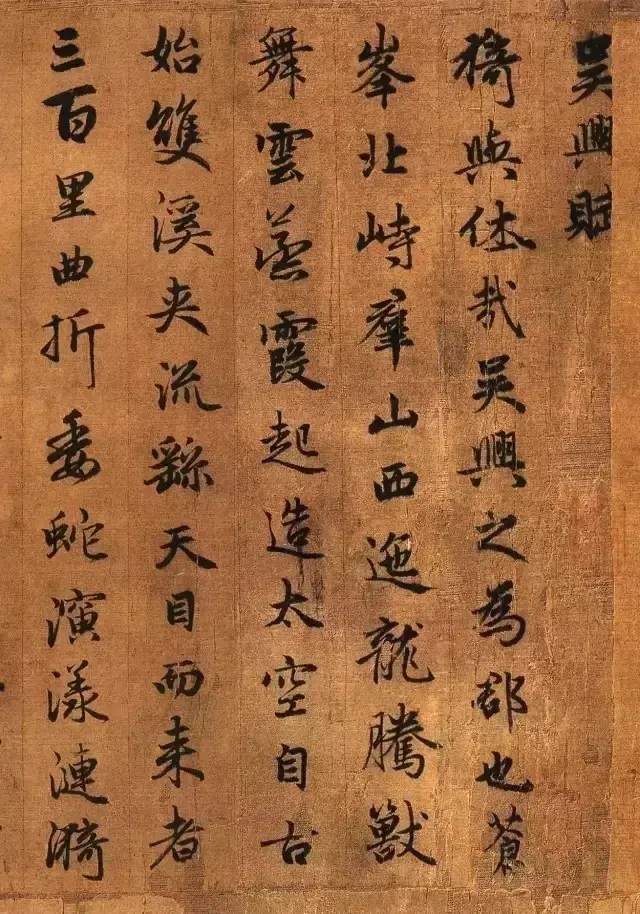 吳興賦
猗與休哉吳興之為郡也蒼
峯北峙羣山西迤龍騰獸
舞雲蒸霞起造太空自古
始雙溪夾流繇天目而来者
三百里曲折委蛇演漾漣漪